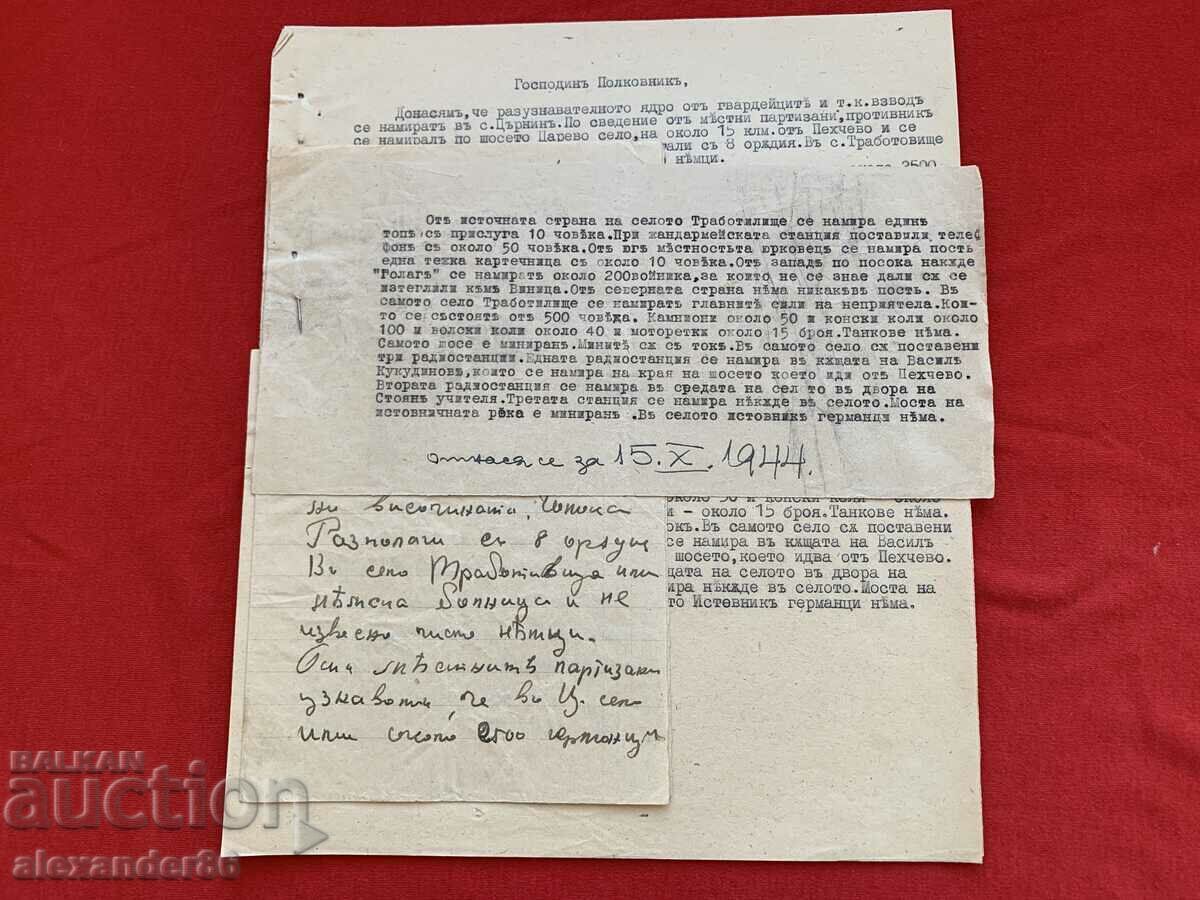 Господинъ Полковникъ,
Донасямъ, че разузнавателното ядро отъ гвардейцитѣ и т.к.взводъ
се намиратъ въ с.Църнинъ.По сведение отъ мѣстни партизани,противникъ
се намиралъ по шосето Царево село,на около 15 клм.отъ Пехчево и се
али съ 8 орѫдия.Въ с.Тработовище
нѣмци.
около 3500
Отъ източната страна на селото Тработилище се намира единъ
топъ съ прислуга 10 човѣка.При жандармейската станция поставили теле
фонъ съ около 50 човѣка.Отъ югъ мѣстностьта юрковецъ се намира постъ
една тежка картечница съ около 10 човѣка.Отъ западъ по посока накѫде
"Голагъ" се намиратъ около 200войника,за които не се знае дали сѫ се
изтеглили къмъ Виница.Отъ северната страна нѣма никакъвъ постъ. Въ
самото село Тработилище се намиратъ главнитѣ сили на неприятела.Кои-
то се състоятъ отъ 500 човѣка. Камниони около 50 и конски коли около
100 и волски коли около 40 и моторетки около 15 броя.Танкове нѣма.
Самото шосе е минирано.Минитѣ сѫ съ токъ.Въ самото село сѫ поставени
три радиостанции.Едната радиостанция се намира въ кѫщата на Василъ
Кукудиновъ,които се намира на края на шосето което иди отъ Пехчево.
Втората радиостанция се намира въ средата на сел то въ двора на
Стоянъ учителя.Третата станция се намира нѣкѫде въ селото.Моста на
истовничната рѣка е миниранъ .Въ селото истовникъ германци нѣма.
отнася се за 15.X.1944.
около 50 и конски коли около
и - около 15 броя.Танкове нѣма.
окъ.Въ самото село сѫ поставени
се намира въ кѫщата на Василъ
шосето,което идва отъ Пехчево.
дата на селото въ двора на
ира нѣкѫде въ селото.Моста на
то Истовникъ германци нѣма.
на височината
Разполаги съ 8 орѫдие
Въ село Тработивища или
болница и не
извесно чисто нѣтци.
Отъ мѣстнитѣ партизани
узнавоти, че въ Ц. село
или около 2500 германци
BALKAN
auction
alexander86